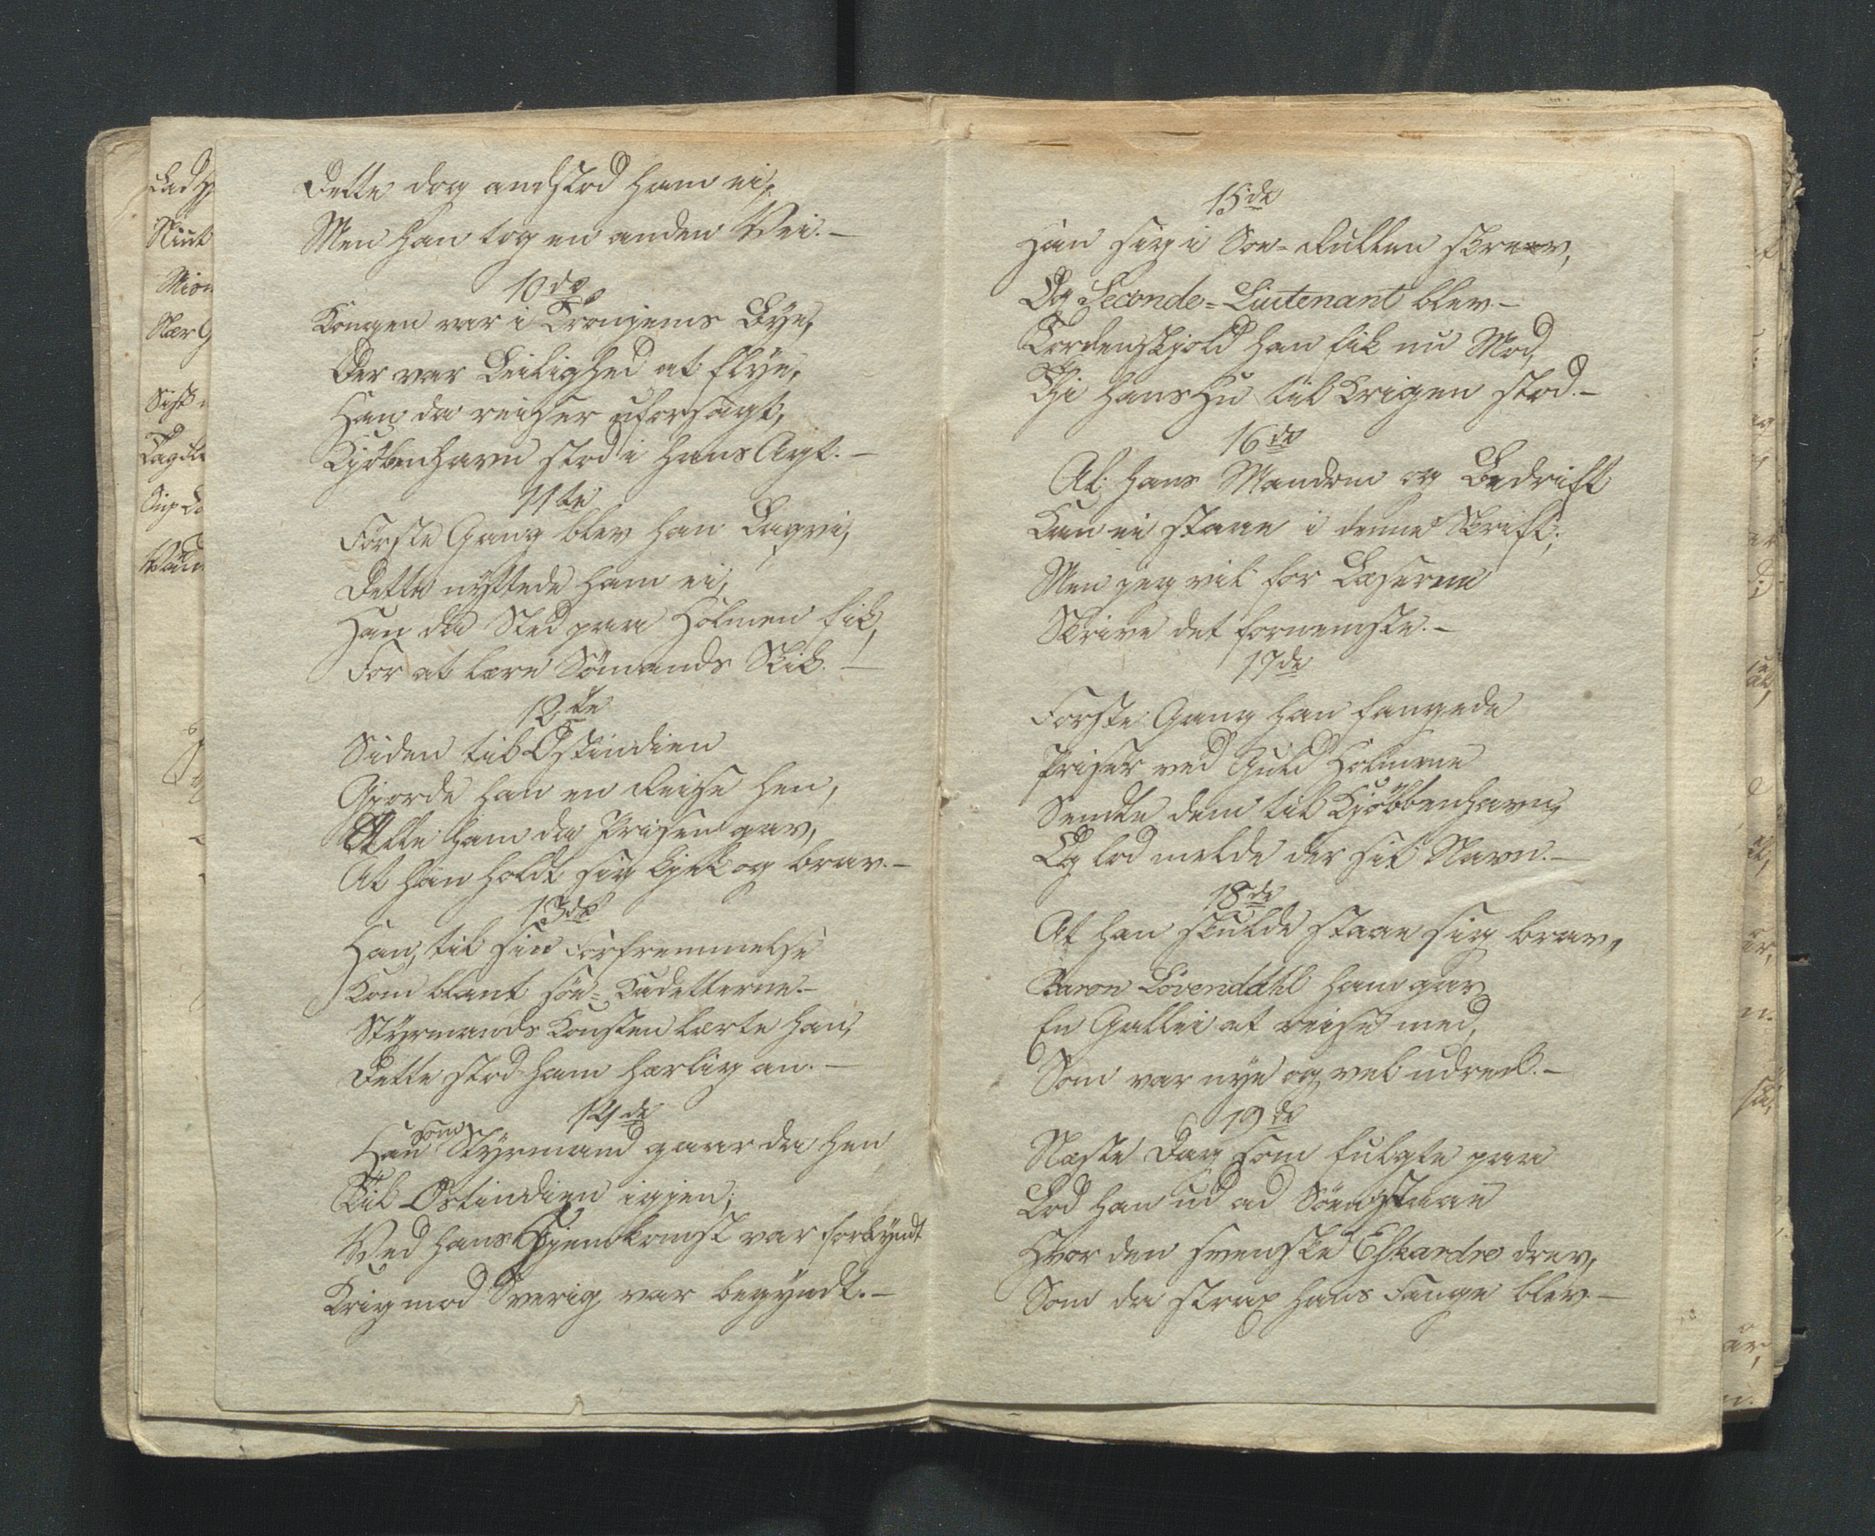 Dette dog anstod ham ei,
Men han tog en anden Vei. –
10de
Kongen var i Tronjems Bye,
Der var Leilighed at flye,
Han da reiser uforsagt,
Kjøbenhavn stod i hans Agt. –
11te
Første Gang blev han Laqvei,
Dette nyttede ham ei,
Han da Sted paa Holmen fik,
For at lære Sømands Skik. –
12te
Siden til Ostindien
Gjorde han en Reise hen,
Alle ham da Prisen gav,
At han holdt sig kjæk og brav. –
13de
Han, til sin Forfremmelse
Kom blant Søe-Kadetterne. –
Styrmands Konsten lærte han,
Dette stod ham herlig an. –
14de
Han som Styrmand gaar da hen
Til Ostindien igjen;
Ved hans Hjemkomst var forkyndt
Krig mod Sverig var begyndt. –
15de
Han sig i Søe-Rullen skrev,
Og Seconde-Lieutenant blev –
Tordenskjold han fik nu Mod,
Thi hans Hu til Krigen stod. –
16de
Al hans Manddom og Bedrift
Kan ei staae i denne Skrift;
Men jeg vil for Læserne
Skrive det fornemste. –
17de
Første Gang han fangede
Priser ved Guld Holmene
Sendte dem til Kjøbbenhavn,
Og lod melde der sit Navn. –
18de
At han skulde staae sig brav,
Baron Løvendahl ham gav
En Gallei at reise med,
Som var nye og vel udreed. –
19de
Næste Dag som fulgte paa
Lod han ud ad Søen staae
Hvor den svenske Eskardre drev,
Som da strax hans Fange blev –